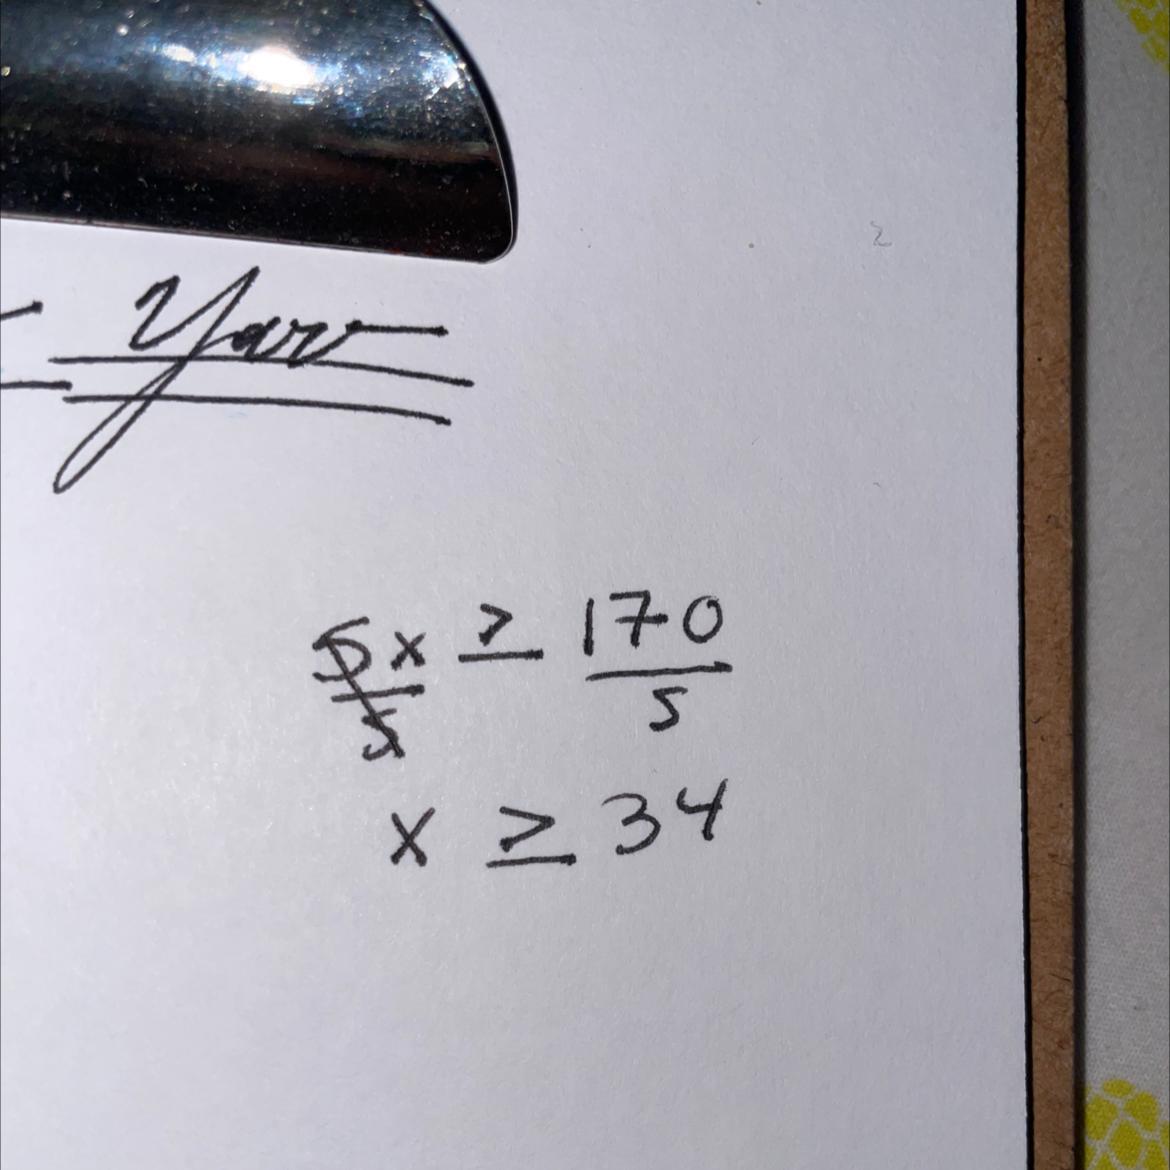 Yaw
5x/5 ≥ 170/5
x ≥ 34